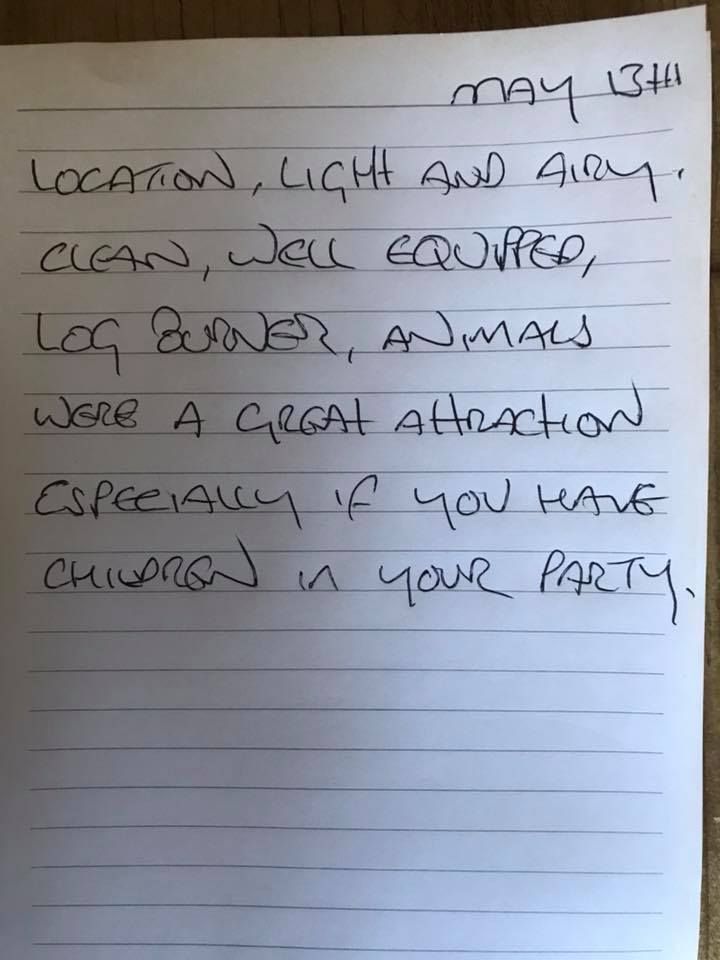 MAY 13TH
LOCATION, LIGHT AND AIRY.
CLEAN, WELL EQUIPPED,
LOG BURNER, ANIMALS
WERE A GREAT ATTRACTION
ESPECIALLY IF YOU HAVE
CHILDREN IN YOUR PARTY.